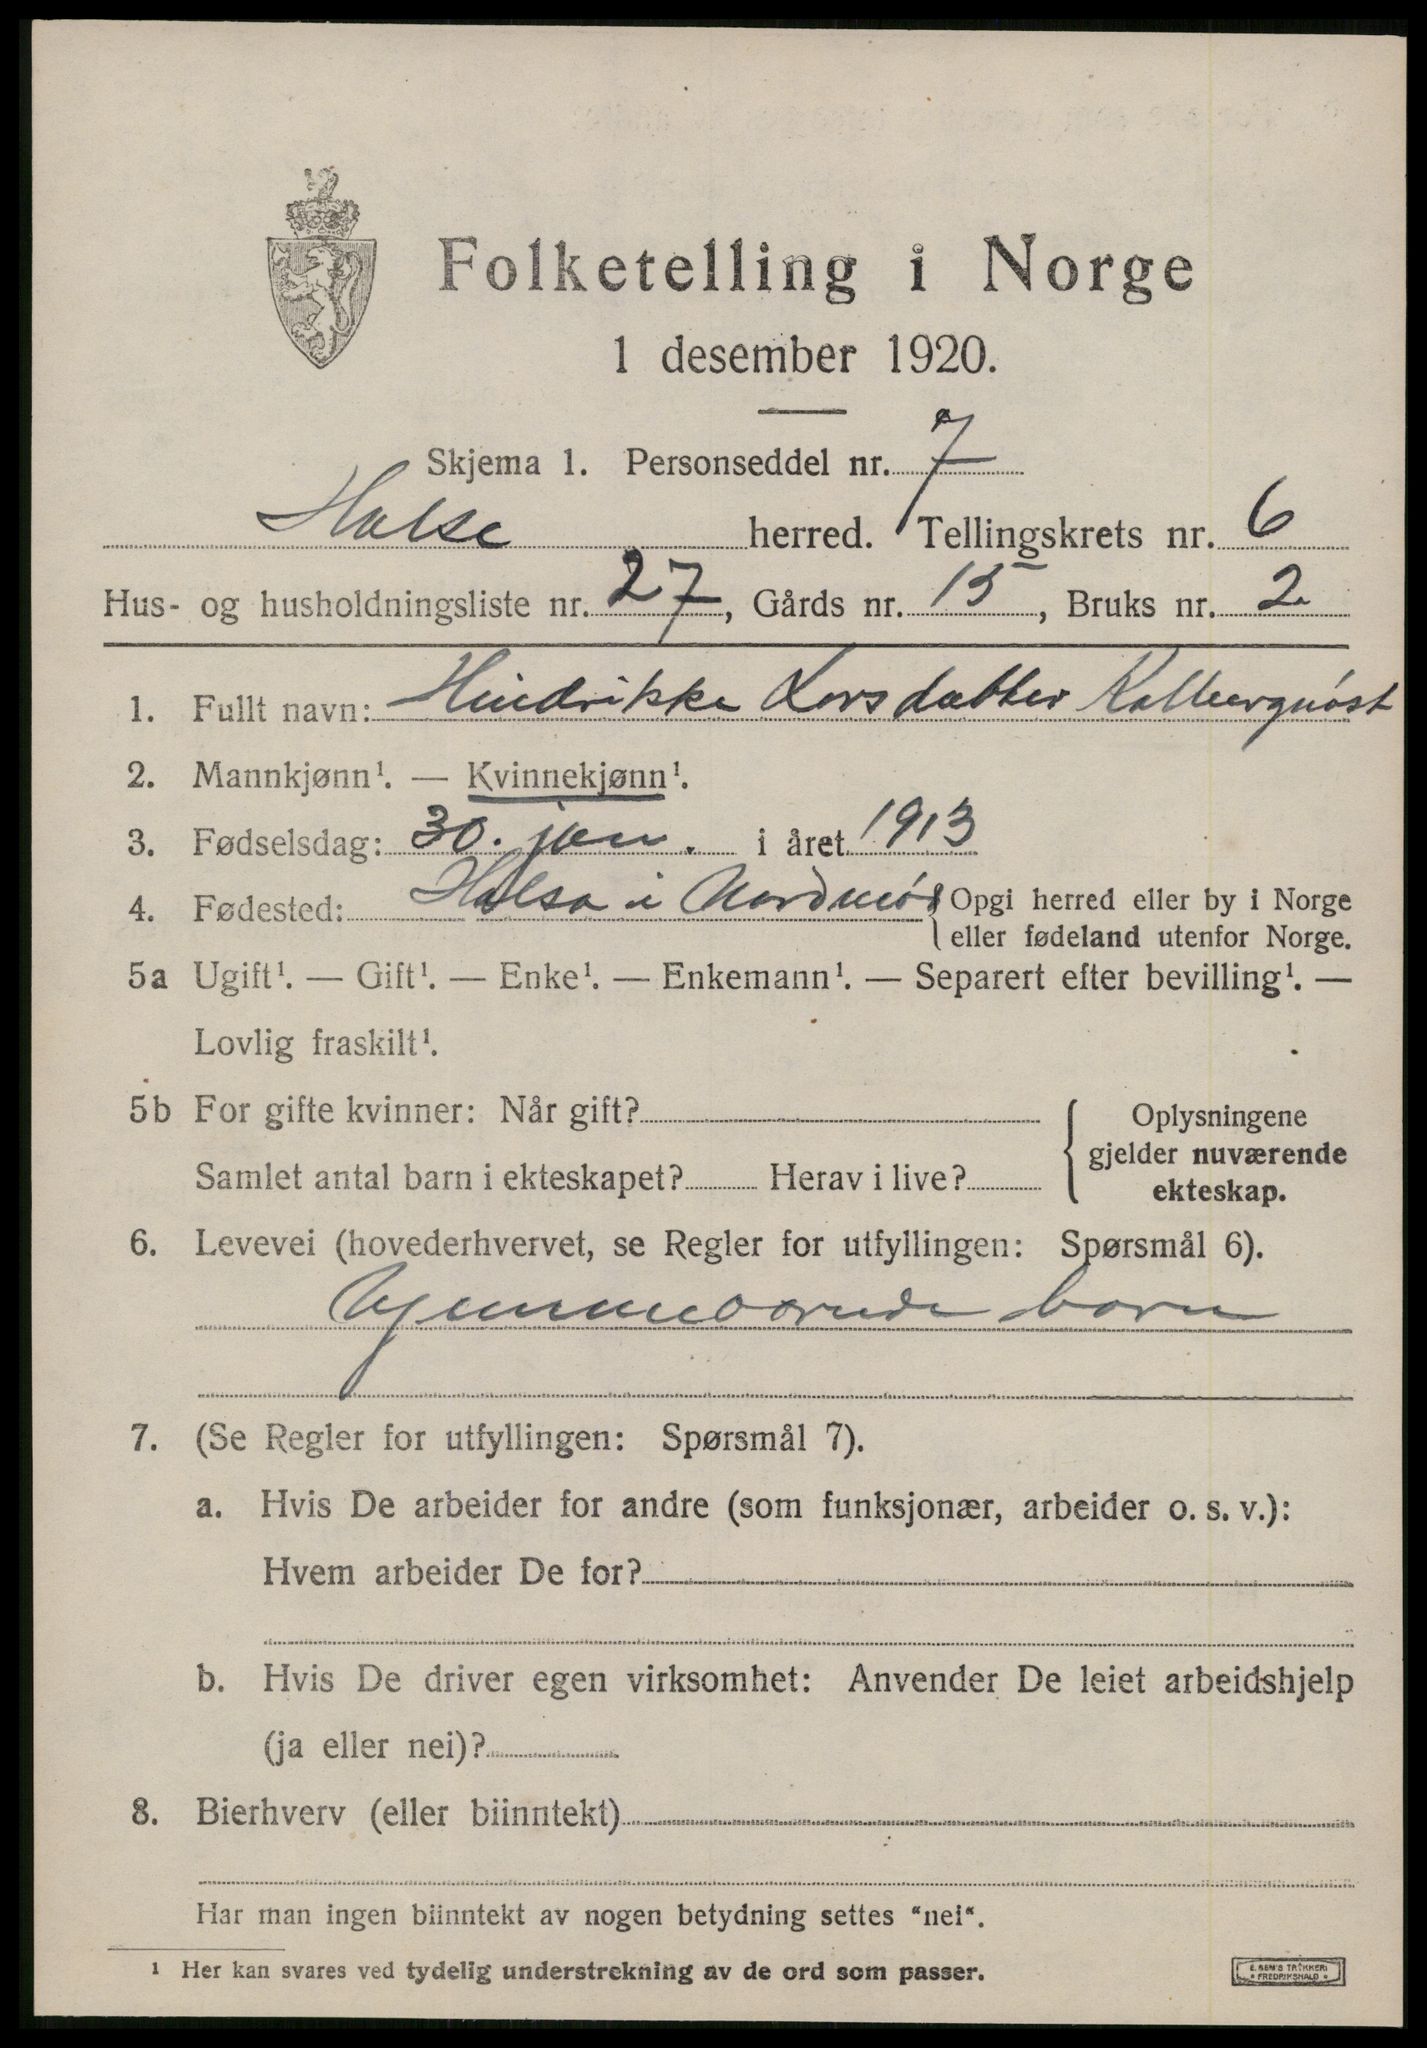 Folketelling i Norge
1 desember 1920.
Skjema 1. Personseddel nr. 7
Halse herred. Tellingskrets nr. 6
Hus- og husholdningsliste nr. 27, Gårds nr. 15, Bruks nr. 2
1. Fullt navn: Hindrikke Larsdatter
2. Mannkjønn¹. — Kvinnekjønn¹.
3. Fødselsdag: 30. jan. i året 1913
4. Fødested: Halsa i Nordmør { Opgi herred eller by i Norge
eller fødeland utenfor Norge.
5a Ugift¹. — Gift¹. — Enke¹. — Enkemann¹. — Separert efter bevilling¹. —
Lovlig fraskilt¹.
5b For gifte kvinner: Når gift?
Samlet antal barn i ekteskapet? Herav i live?
{ Oplysningene
gjelder nuværende
ekteskap.
6. Levevei (hovederhvervet, se Regler for utfyllingen: Spørsmål 6).
hjemmeværende barn
7. (Se Regler for utfyllingen: Spørsmål 7).
a. Hvis De arbeider for andre (som funksjonær, arbeider o. s. v.):
Hvem arbeider De for?
b. Hvis De driver egen virksomhet: Anvender De leiet arbeidshjelp
(ja eller nei)?
8. Bierhverv (eller biinntekt)
Har man ingen biinntekt av nogen betydning settes "nei".
¹ Her kan svares ved tydelig understrekning av de ord som passer.
E. SEM'S TRYKKERI
* FREDRIKSHALD *